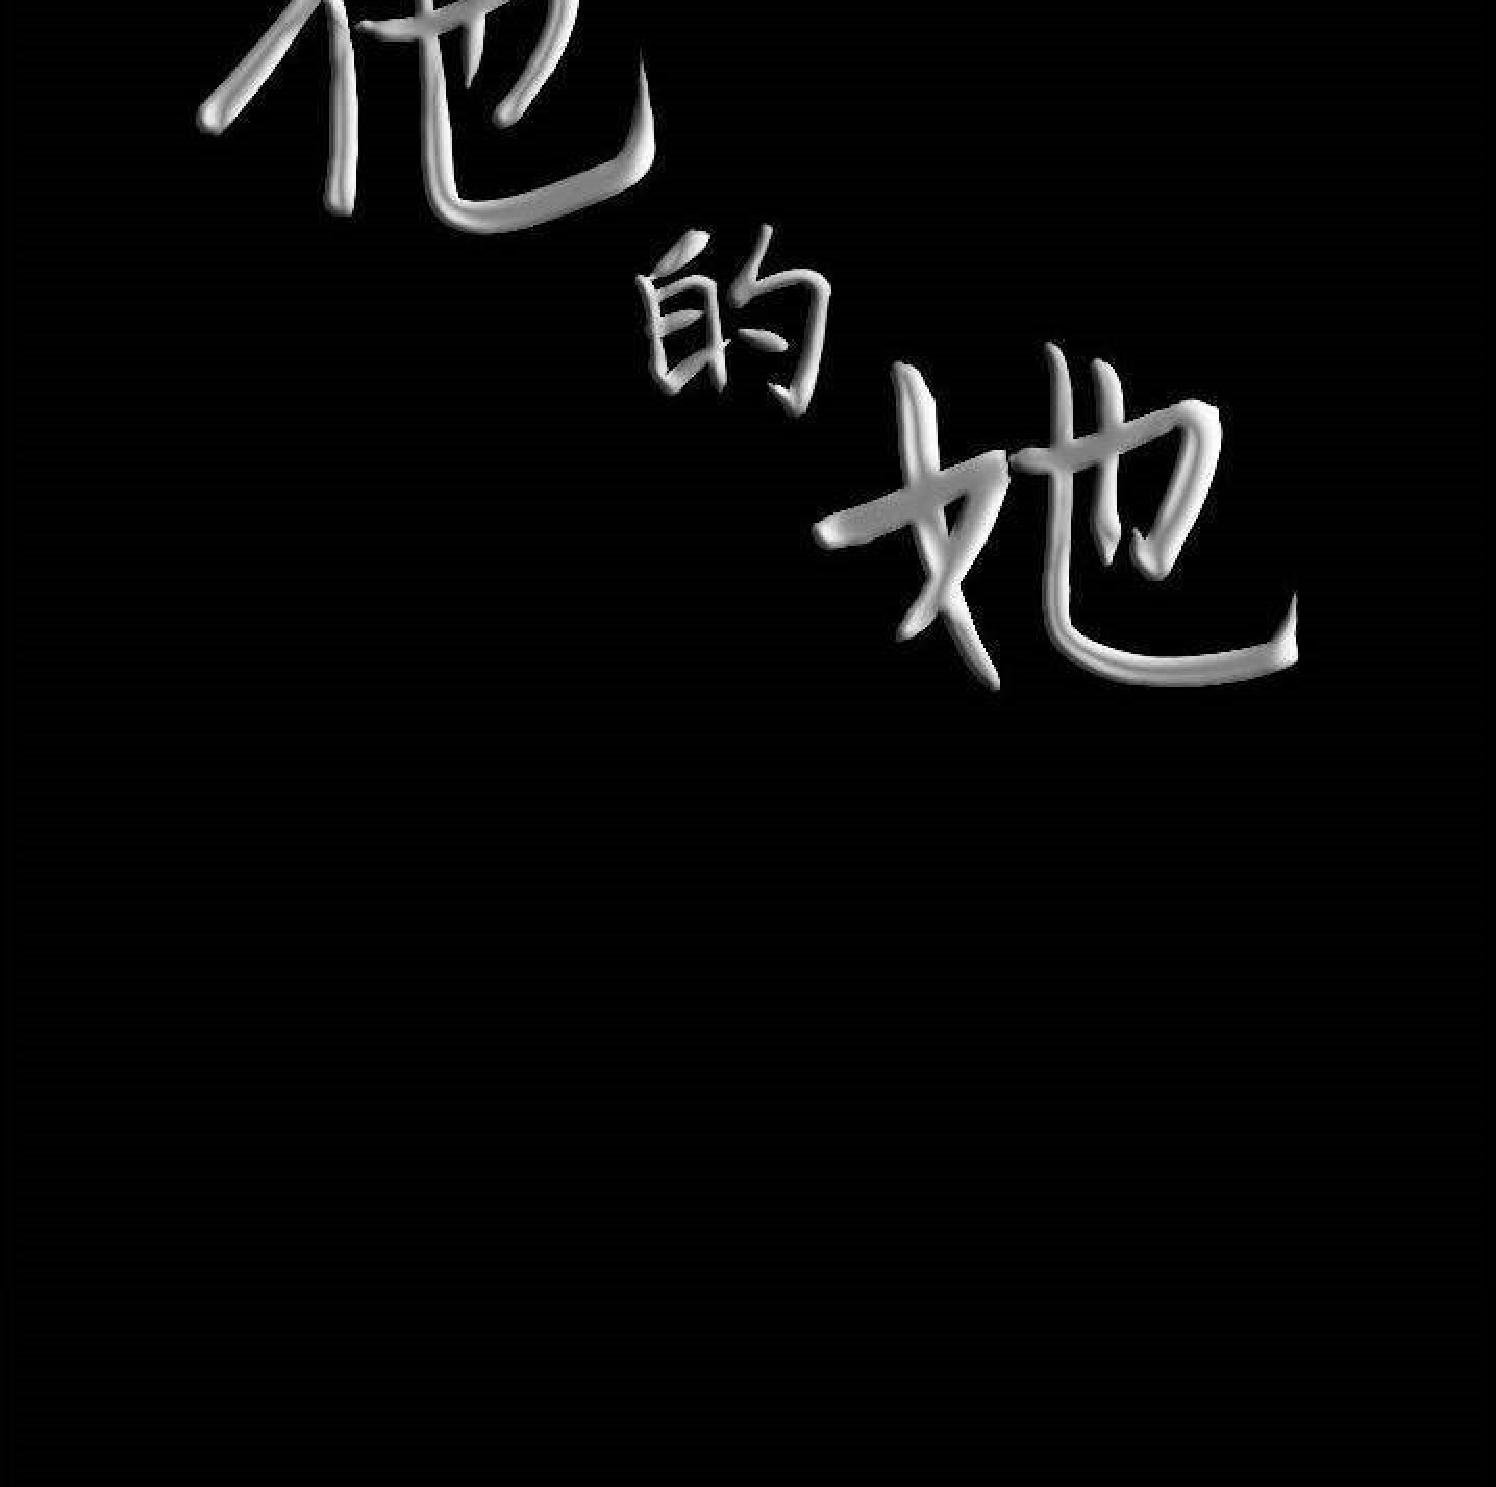 他的她